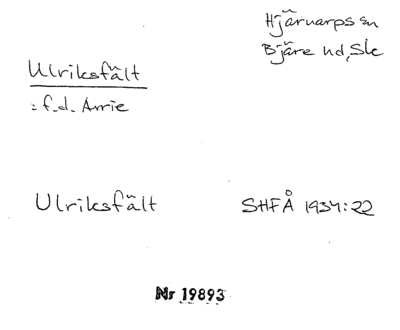 Hjärnarps sn
Bjäre hd, Sk
Ulriksfält
= f.d. Arrie
Ulriksfält SHFÅ 1934:22
Nr 19893